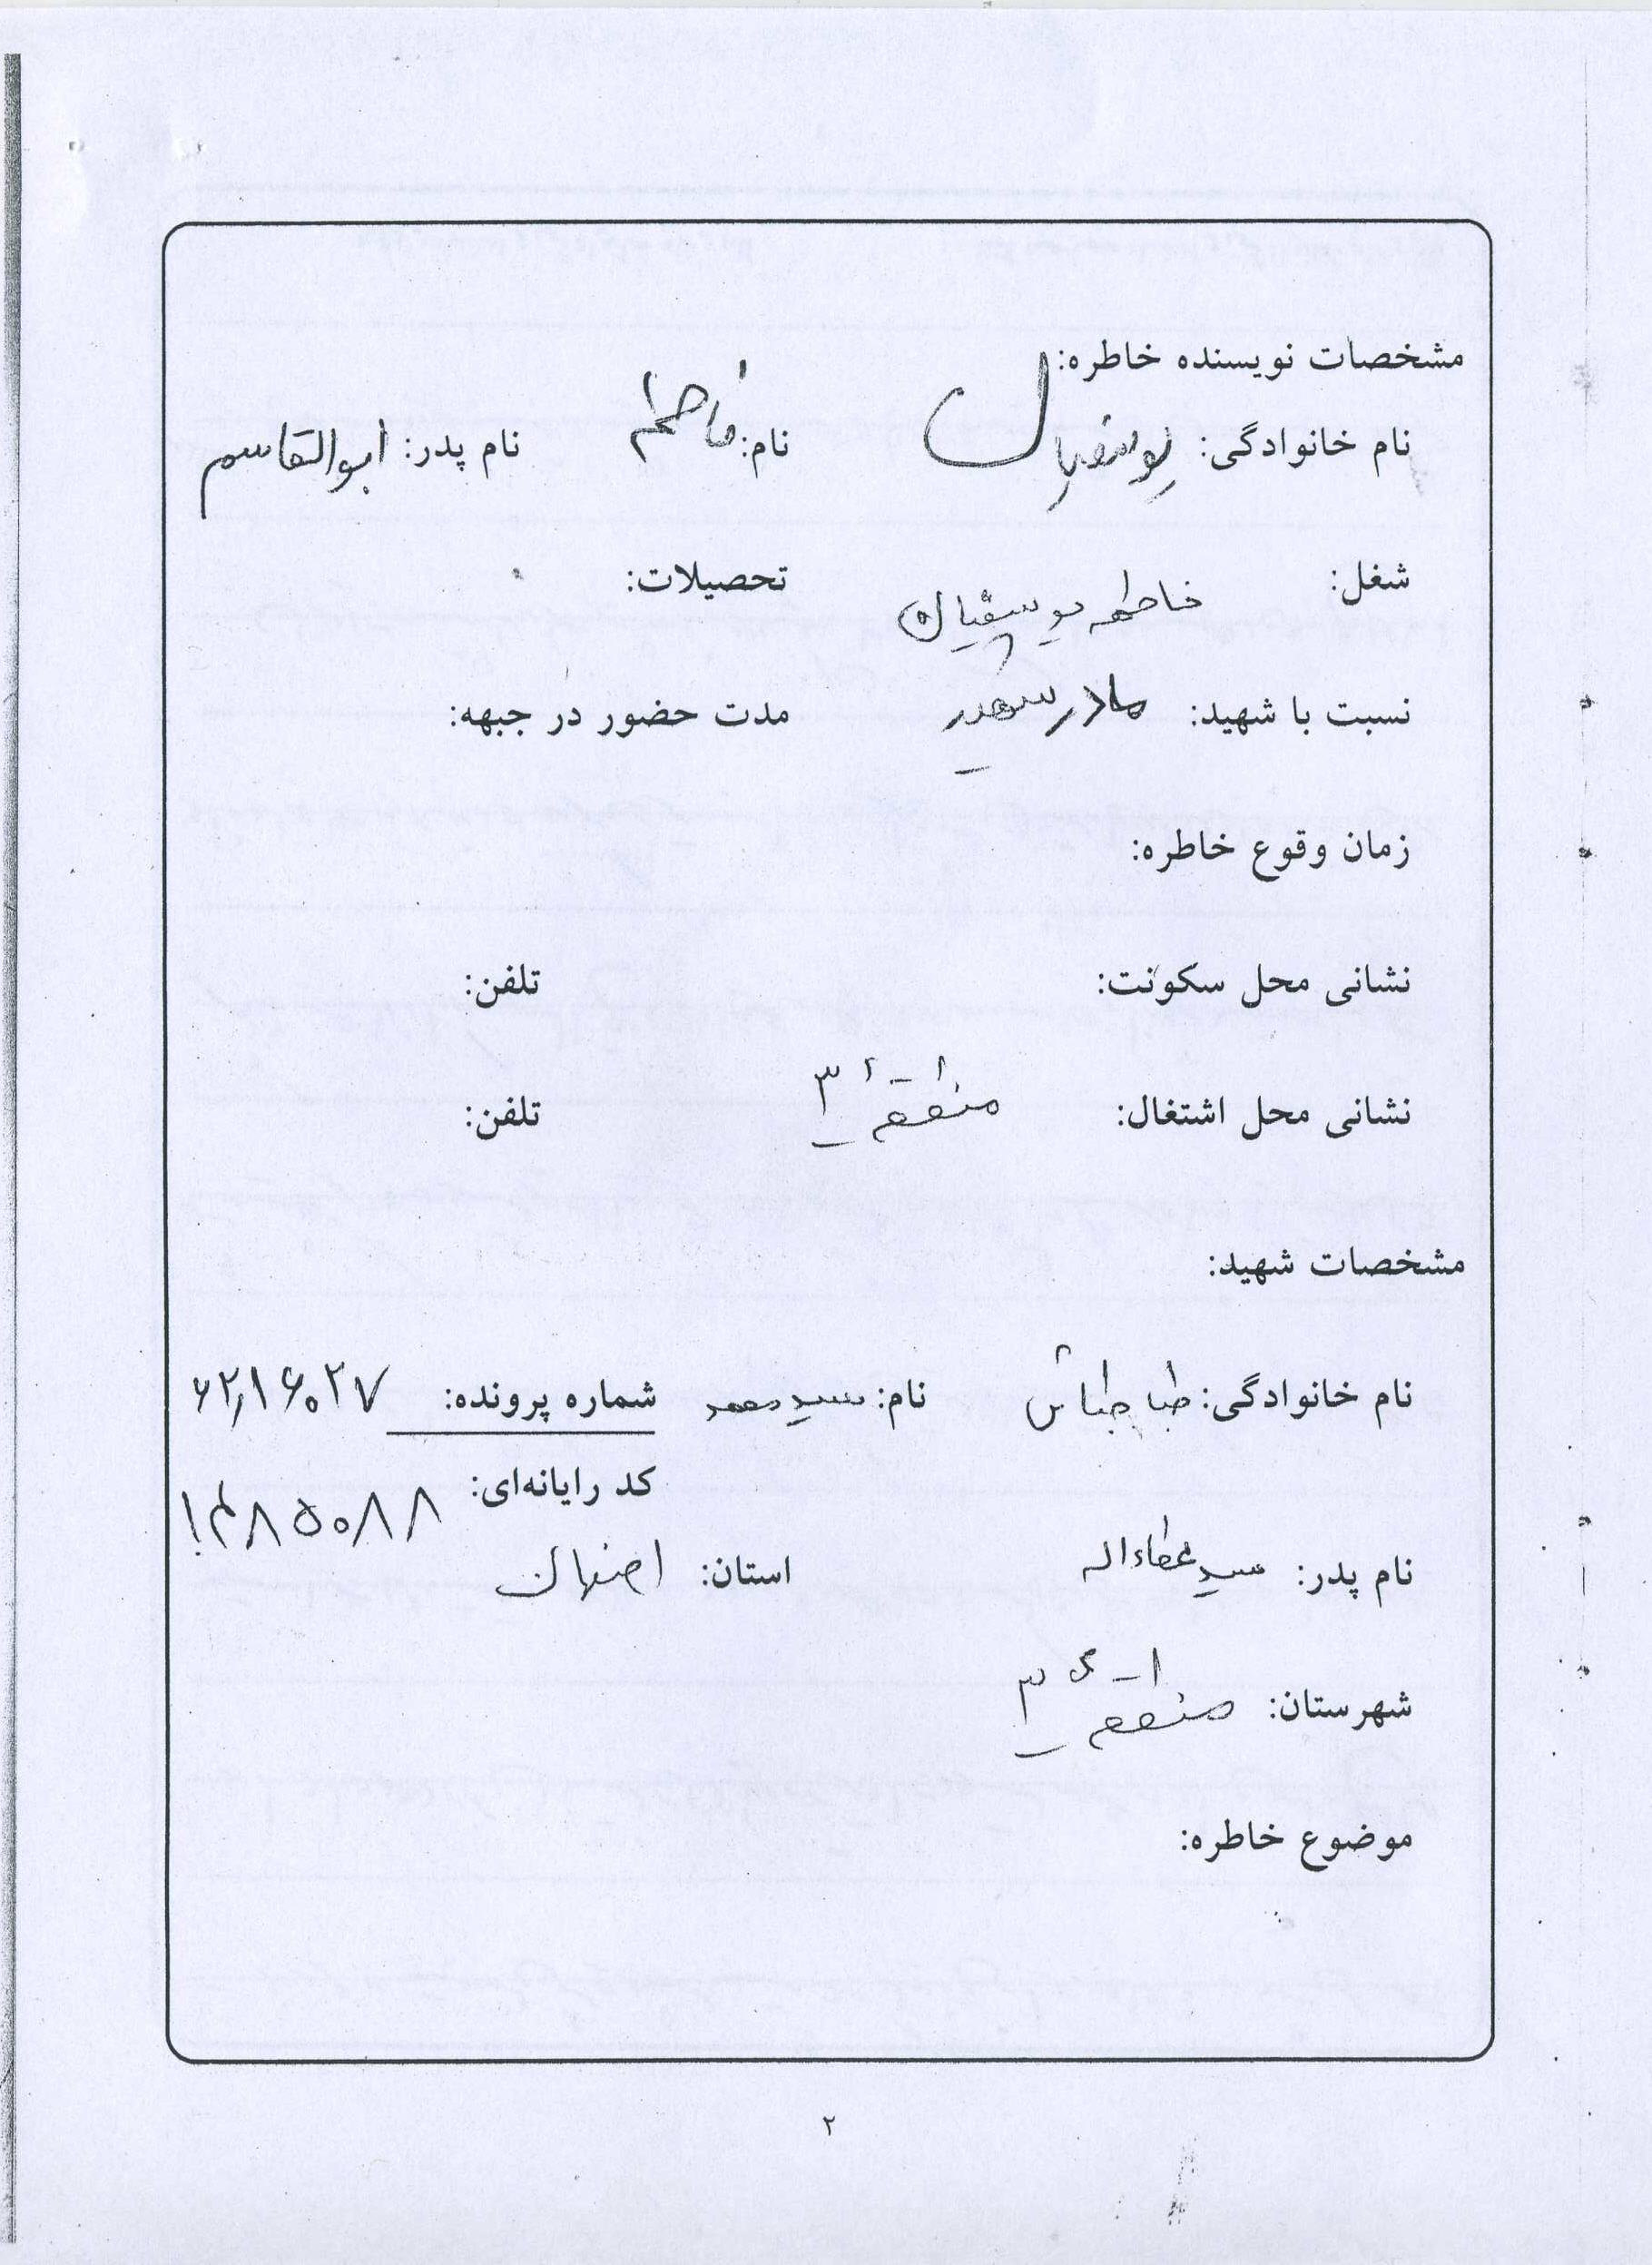 مشخصات نویسنده خاطره:
نام خانوادگی: یوسفیان نام: فاطمه نام پدر: ابوالقاسم
شغل: تحصیلات:
فاطمه یوسفیان
نسبت با شهید: مادر شهید مدت حضور در جبهه:
زمان وقوع خاطره:
نشانی محل سکونت: تلفن:
نشانی محل اشتغال: منطقه ۳ تلفن:
مشخصات شهید:
نام خانوادگی: طباطبائی نام: سید محمد شماره پرونده: ۶۲,۱۶۰۲۷
کد رایانه‌ای: ۱۴۸۵۰۸۸
نام پدر: سید عطاءاله استان: اصفهان
شهرستان: منطقه ۳
موضوع خاطره:
۲